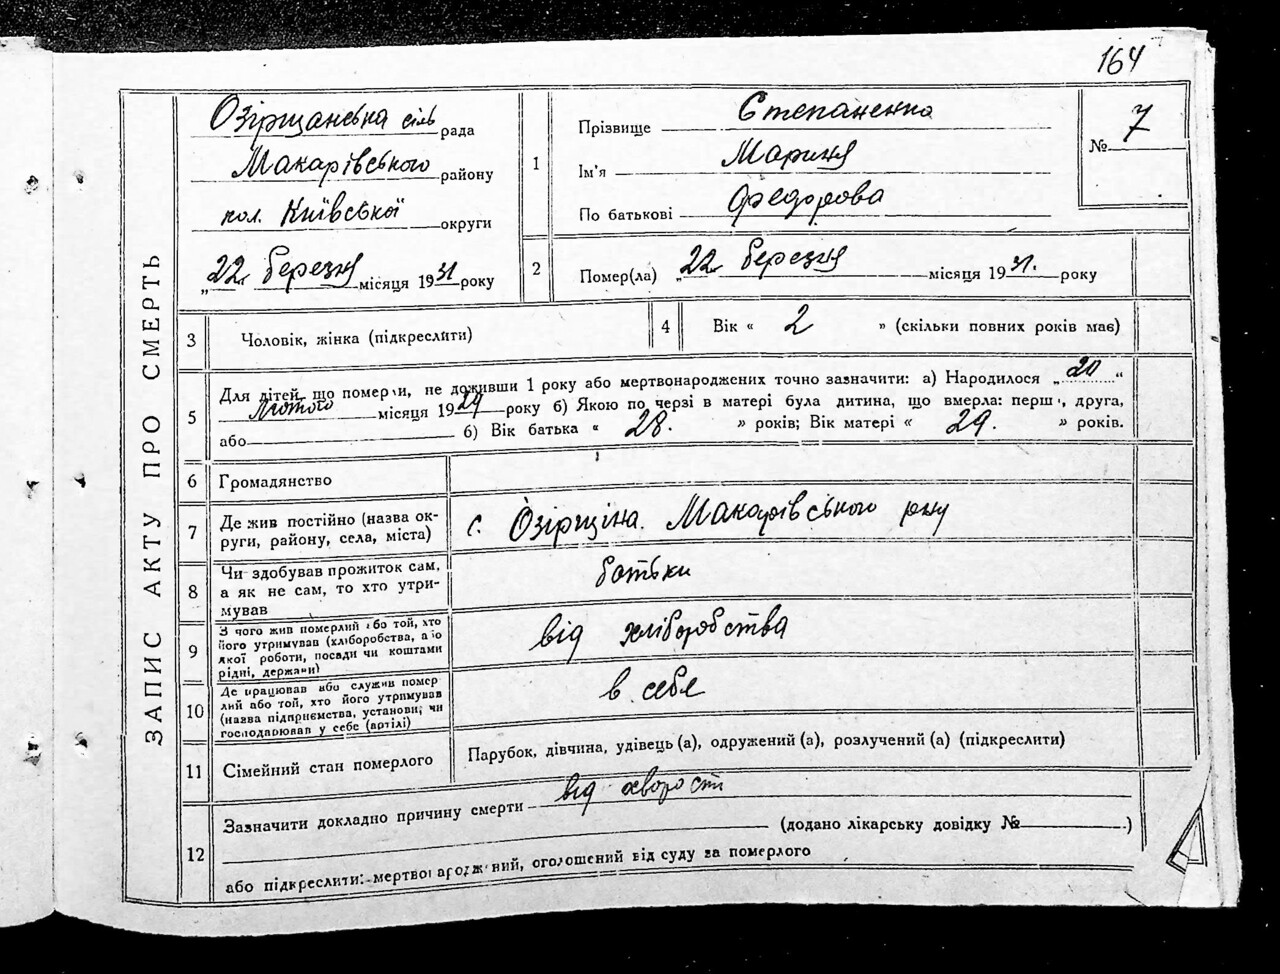 164
ЗАПИС АКТУ ПРО СМЕРТЬ
Озірщанська сіль рада
Макарівського району
кол. Київської округи
„22 березня місяця 1931 року
1
Прізвище Степаненко
Ім'я Марина
По батькові Федорова
№ 7
2
Помер(ла) „22 березня місяця 1931. року
3
Чоловік, жінка (підкреслити)
4
Вік « 2 » (скільки повних років має)
5
Для дітей, що померли, не доживши 1 року або мертвонароджених точно зазначити: а) Народилося „20“
лютого місяця 1929 року б) Якою по черзі в матері була дитина, що вмерла: перша, друга,
або б) Вік батька « 28. » років; Вік матері « 29. » років.
6
Громадянство
7
Де жив постійно (назва ок-
руги, району, села, міста)
с. Озірщіна. Макарівського рну
8
Чи здобував прожиток сам,
а як не сам, то хто утри-
мував
батьки
9
З чого жив померлий або той, хто
його утримував (хліборобства, або
якої роботи, посади чи коштами
рідні, держави)
від хліборобства
10
Де працював або служив помер-
лий або той, хто його утримував
(назва підприємства, установи; чи
господарював у себе (артілі)
в себе
11
Сімейний стан померлого
Парубок, дівчина, удівець (а), одружений (а), розлучений (а) (підкреслити)
12
Зазначити докладно причину смерти від хворости
(додано лікарську довідку № )
або підкреслити: мертвонароджений, оголошений від суду за померлого